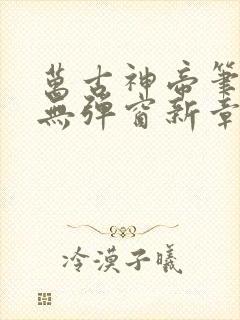 萬古神帝筆
無彈窗新章
冷漠子曦